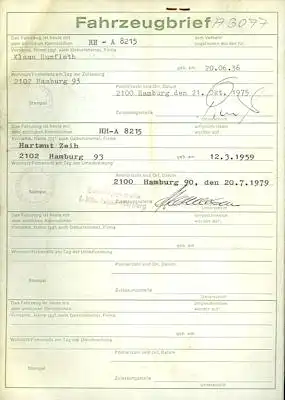 Fahrzeugbrief A 3077
Das Fahrzeug ist heute mit dem Verkehr
dem amtlichen Kennzeichen HH-A 8215 zugelassen worden für
Vorname, Name (ggf. auch Geburtsname), Firma
Klaus
geb. am 20.06.36
Wohnort/Firmensitz am Tag der Zulassung
2102 Hamburg 93
Postleitzahl und Ort, Datum
2000 Hamburg den 21. Okt. 1975
Stempel
Zulassungsstelle
Unterschrift
Das Fahrzeug ist heute mit
dem amtlichen Kennzeichen HH-A 8215 umgeschrieben worden für
Vorname, Name (ggf. auch Geburtsname), Firma
Hartmut Zeih
2102 Hamburg 93 geb. am 12.3.1959
Wohnort/Firmensitz am Tag der Umschreibung
Postleitzahl und Ort, Datum
2100 Hamburg 90, den 20.7.1979
Stempel
Zulassungsstelle
Unterschrift
Das Fahrzeug ist heute mit umgeschrieben
dem amtlichen Kennzeichen worden für
Vorname, Name (ggf. auch Geburtsname), Firma
geb. am
Wohnort/Firmensitz am Tag der Umschreibung
Postleitzahl und Ort, Datum
Stempel
Zulassungsstelle
Unterschrift
Das Fahrzeug ist heute mit umgeschrieben
dem amtlichen Kennzeichen worden für
Vorname, Name (ggf. auch Geburtsname), Firma
geb. am
Wohnort/Firmensitz am Tag der Umschreibung
Postleitzahl und Ort, Datum
Stempel
Zulassungsstelle
Unterschrift